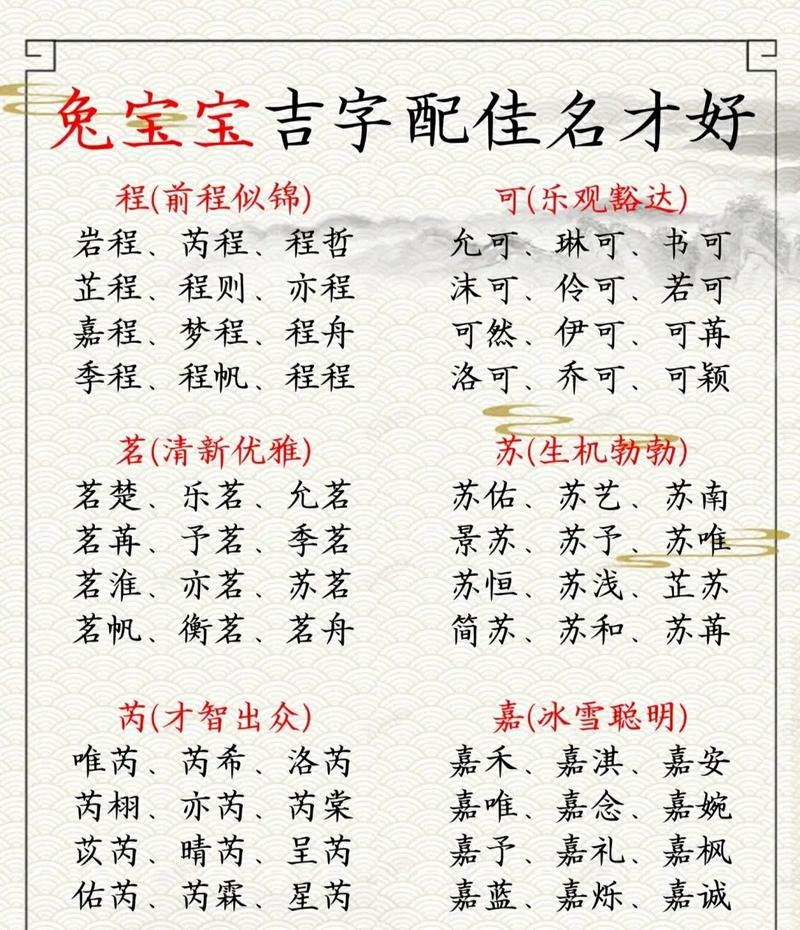 兔宝宝吉字配佳名才好
程(前程似锦)
岩程、芮程、程哲
芷程、程则、亦程
嘉程、梦程、程舟
季程、程帆、程程
可(乐观豁达)
允可、琳可、书可
沫可、伶可、若可
可然、伊可、可苒
洛可、乔可、可颖
茗(清新优雅)
茗楚、乐茗、允茗
茗苒、予茗、季茗
茗淮、亦茗、苏茗
茗帆、衡茗、茗舟
苏(生机勃勃)
苏佑、苏艺、苏南
景苏、苏予、苏唯
苏恒、苏浅、芷苏
简苏、苏和、苏苒
芮(才智出众)
唯芮、芮希、洛芮
芮栩、亦芮、芮棠
苡芮、晴芮、呈芮
佑芮、芮霖、星芮
嘉(冰雪聪明)
嘉禾、嘉淇、嘉安
嘉唯、嘉念、嘉婉
嘉予、嘉礼、嘉枫
嘉蓝、嘉烁、嘉诚